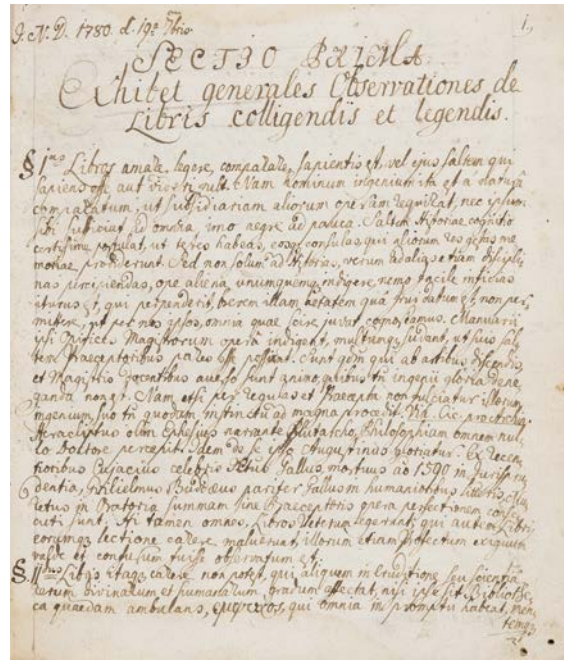 J. N. D. 1780. d. 19. 7bris.
1.
SECTIO PRIMA.
Exhibet generales Observationes de
Libris colligendis et legendis.
§ I. Libros amare, legere, comparare, sapientis est, vel ejus saltem qui
sapiens esse aut videri vult. Nam hominum ingenium ita est a natura
comparatum, ut subsidiariam aliorum operam requirat, nec ipsum
sibi sufficiat ad omnia, imo aegre ad pauca. Saltem Historiae cognitio
certissime postulat, ut libros habeas, eosq consulas, qui aliorum res gestas me
moriae prodiderunt. Sed non solum ad Historias, verum ad alias etiam discipli
nas percipiendas, ope aliena unumquemq indigere, nemo facile inficias
iturus est, qui perpenderit, brevem illam aetatem qua frui datum est, non per
mittere, ut per nos ipsos, omnia quae scire juvat cognoscamus. Manuarii
ipsi Opifices Magistrorum opera indigent, multumq juvant, ut suis sal
tem Praeceptoribus pares esse possint. Sunt qdm qui ab artibus discendis
et Magistris docentibus averso sunt animo, quibus tn ingenii gloria dene
ganda non est. Nam etsi per regulas et praecepta non fulciatur illorum
ingenium, suo tn quodam instinctu ad magna procedit.
Heraclitus olim Ephesius narrante Plutarcho, Philosophiam omnem nul
lo Doctore percepit. Idem de se ipso Augustinus gloriatur. Ex recen
tioribus Cujacius celebris Gallus, mortuus ao 1590 in Jurispru
dentia, Wilielmus Budaeus pariter Gallus in humanioribus litteris, Mu
retus in Oratoria summam sine Praeceptoris opera perfectionem conse
cuti sunt. At tamen omnes Libros Veterum legerant; qui autem Libris
eorumq lectione carere maluerunt, illorum etiam profectum exiguum
valde et confusum fuisse observatum est.
§. II. Libris itaq carere non potest, qui aliquem in Eruditione seu scientia
rerum divinarum et humanarum gradum affectat, nisi ipse sit Bibliothe
ca quaedam ambulans, qui omnia in promptu habeat, men
temq